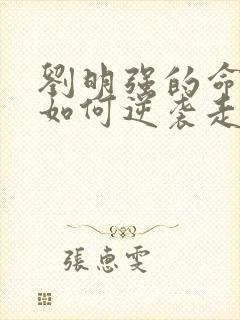 劉明强的命
如何逆袭走
張惠雯